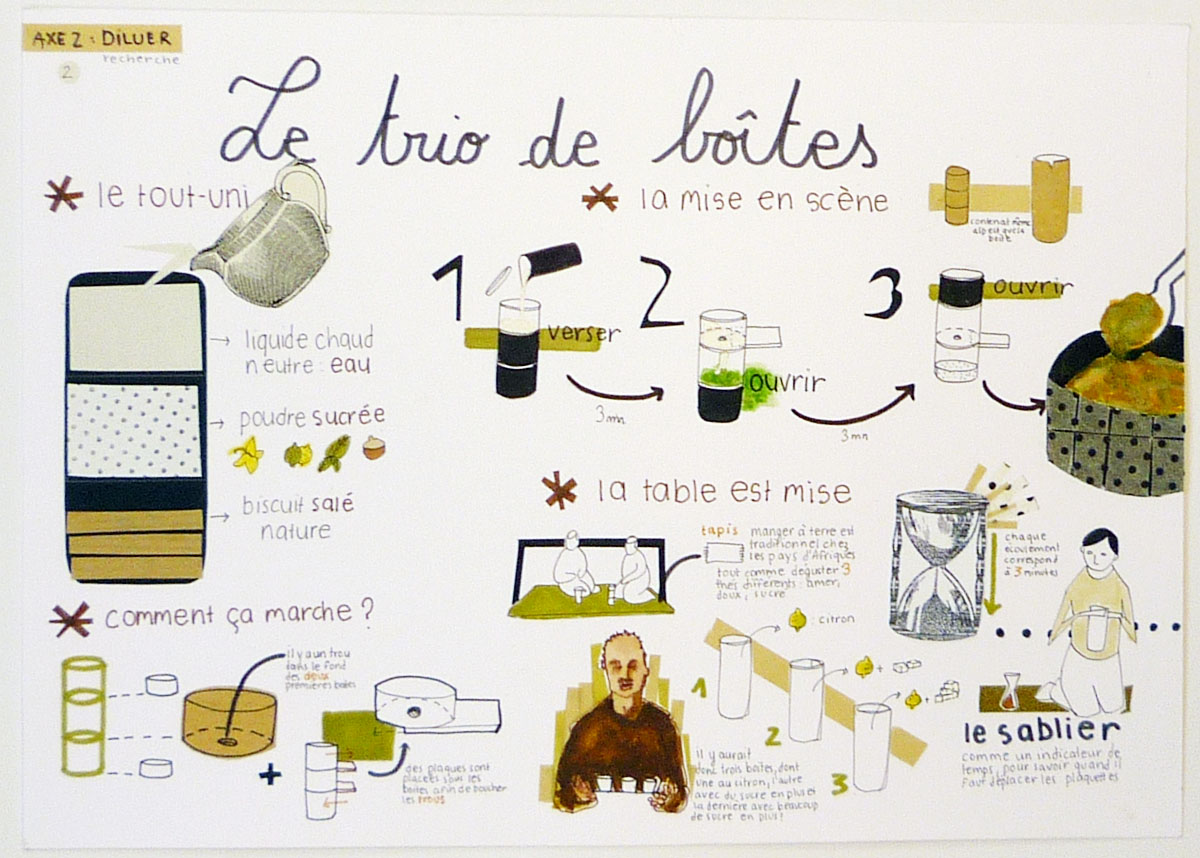 AXE 2 : DILUER
recherche
2
Le trio de boîtes
le tout-uni
liquide chaud
neutre : eau
poudre sucrée
biscuit salé
nature
comment ça marche ?
il y a un trou
dans le fond
des deux
premières boites
+
des plaques sont
placées sous les
boites afin de boucher
les trous
la mise en scène
même
boîte
1
verser
3mn
2
ouvrir
3mn
3
ouvrir
la table est mise
tapis
manger à terre est
traditionnel chez
les pays d'Afriques
tout comme déguster 3
thés différents : amer,
doux, sucré
1
: citron
2
+
3
+
il y aurait
donc trois boites, dont
une au citron, l'autre
avec du sucre en plus et
la dernière avec beaucoup
de sucre en plus!
chaque
écoulement
correspond
à 3 minutes
le sablier
comme un indicateur de
temps, pour savoir quand il
faut déplacer les plaquettes